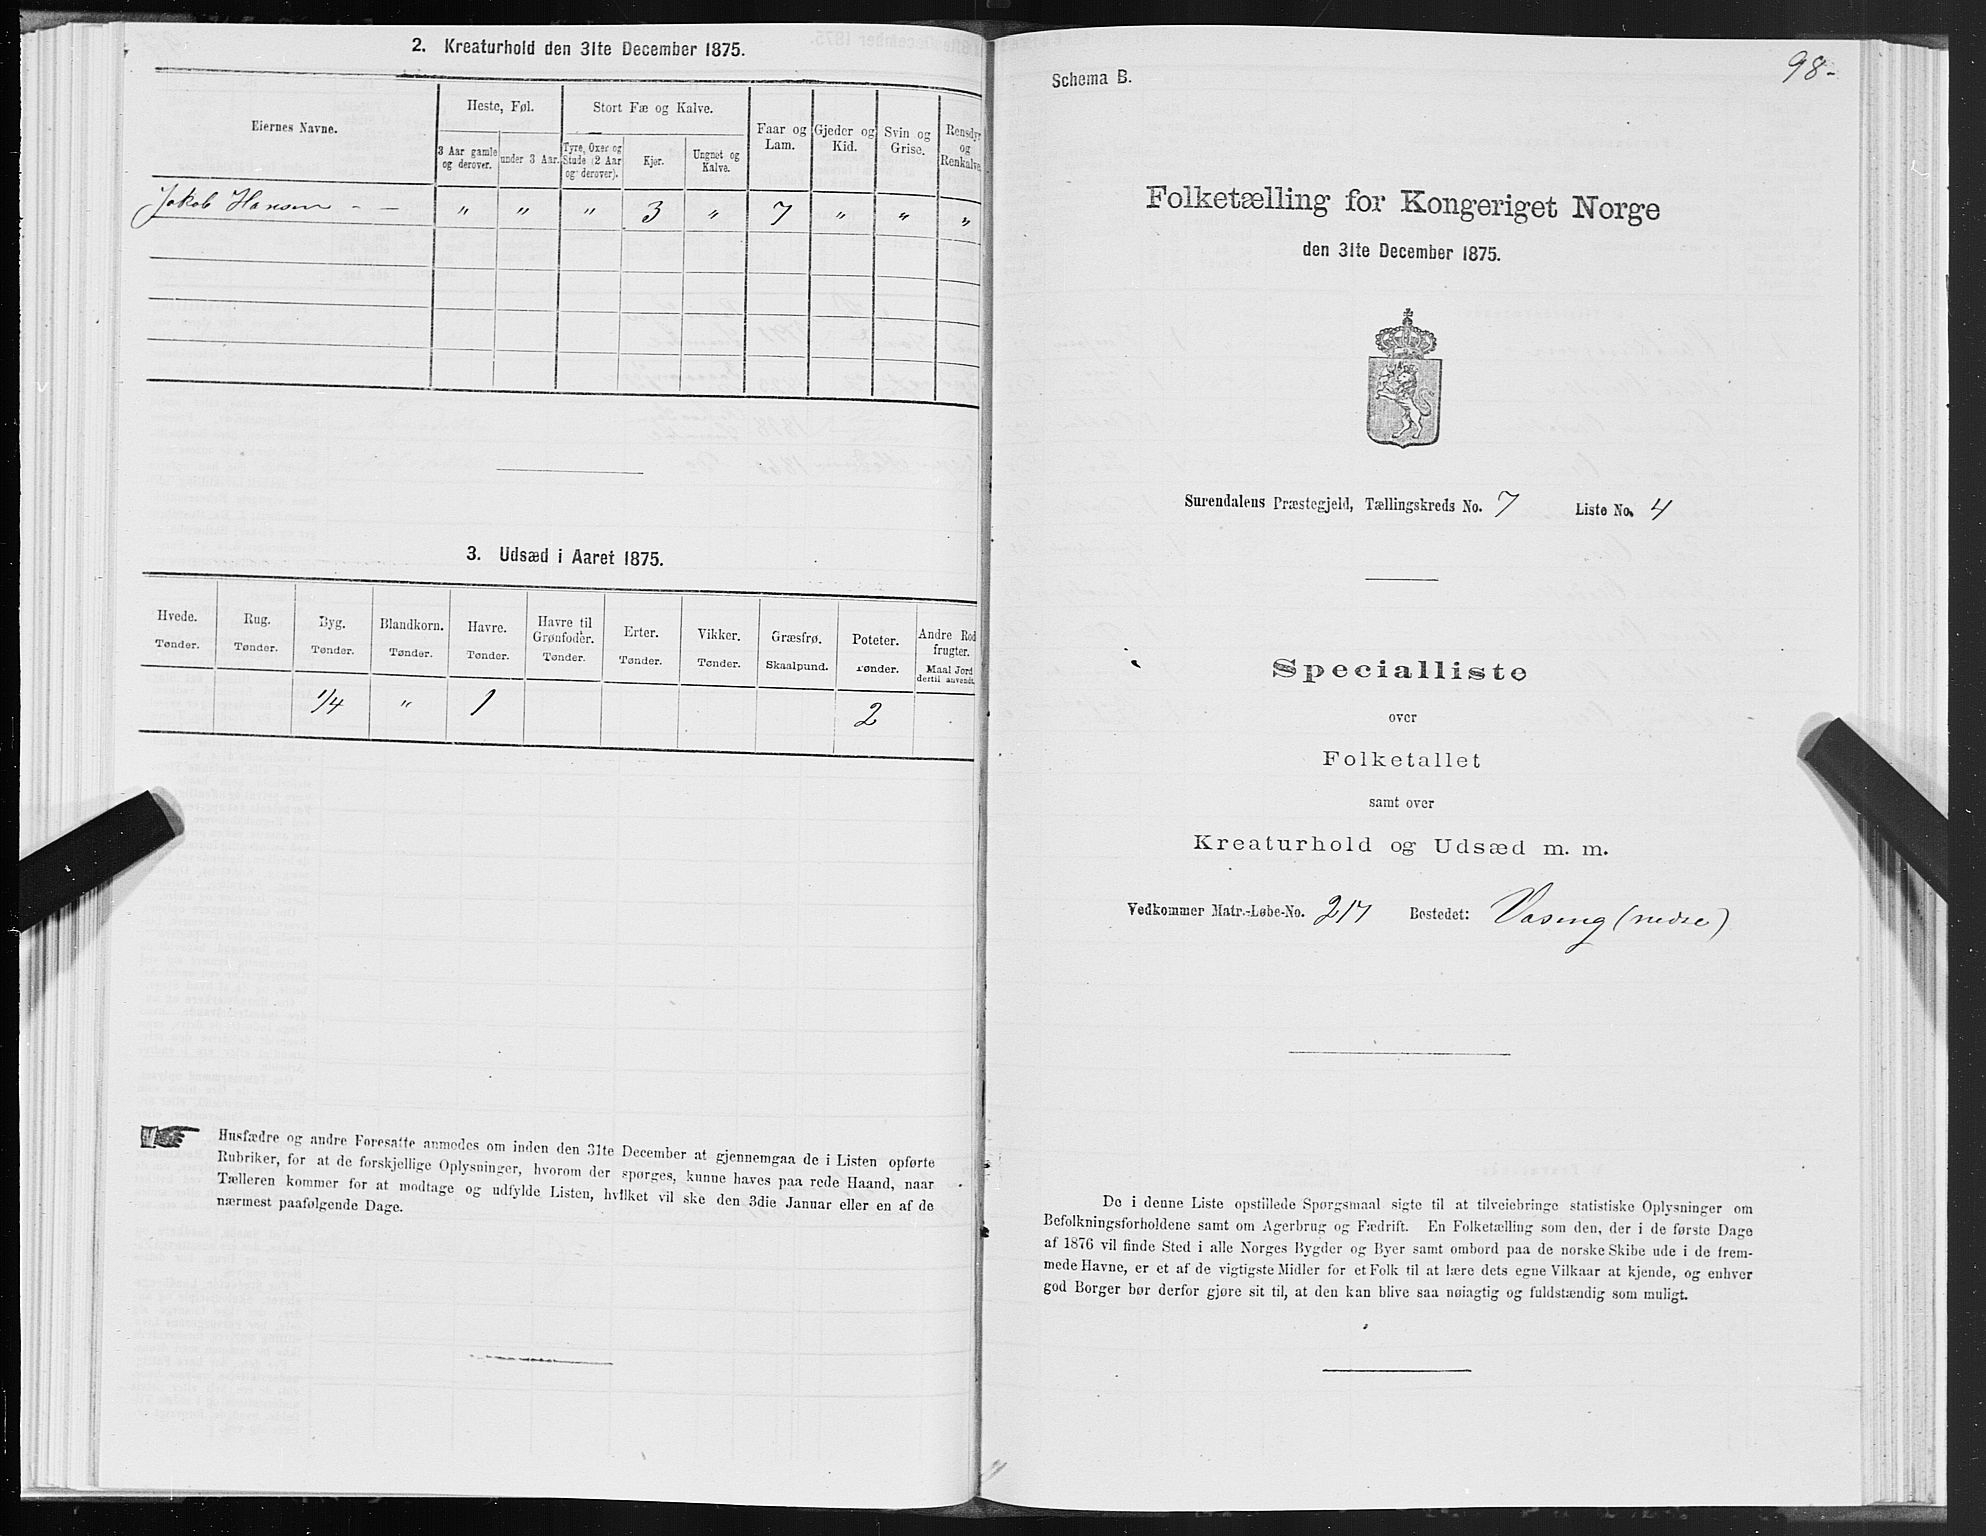 2. Kreaturhold den 31te December 1875.
Eiernes Navne.
Heste, Føl.
Stort Fæ og Kalve.
Faar og Lam.
Gjeder og Kid.
Svin og Grise.
Rensdyr og Renkalve
3 Aar gamle og derover.
under 3 Aar.
Tyre, Oxer og Stude (2 Aar og derover).
Kjer.
Ungnet og Kalve.
Jakob Hansen - - " " " 3 " 7 " " "
3. Udsæd i Aaret 1875.
Hvede. Rug. Byg. Blandkorn. Havre. Havre til Grønfoder. Erter. Vikker. Græsfrø. Poteter. Andre Rod frugter.
Tønder. Tønder. Tønder. Tønder. Tønder. Tønder. Tønder. Tønder. Skaalpund. Tønder. Maal Jord dertil anvendt.
1/4 " 1 2
Husfædre og andre Foresatte anmodes om inden den 31te December at gjennemgaa de i Listen opførte
Rubriker, for at de forskjellige Oplysninger, hvorom der spørges, kunne haves paa rede Haand, naar
Tælleren kommer for at modtage og udfylde Listen, hvilket vil ske den 3die Januar eller en af de
nærmest paafølgende Dage.
98-
Schema B.
Folketælling for Kongeriget Norge
den 31te December 1875.
Surendalens Præstegjeld, Tællingskreds No. 7 Liste No. 4
Specialliste
over
Folketallet
samt over
Kreaturhold og Udsæd m. m.
Vedkommer Matr.-Løbe-No. 217 Bostedet: Vaseng (nedre)
De i denne Liste opstillede Spørgsmaal sigte til at tilveiebringe statistiske Oplysninger om
Befolkningsforholdene samt om Agerbrug og Fædrift. En Folketælling som den, der i de første Dage
af 1876 vil finde Sted i alle Norges Bygder og Byer samt ombord paa de norske Skibe ude i de frem-
mede Havne, er et af de vigtigste Midler for et Folk til at lære dets egne Vilkaar at kjende, og enhver
god Borger bør derfor gjøre sit til, at den kan blive saa nøiagtig og fuldstændig som muligt.